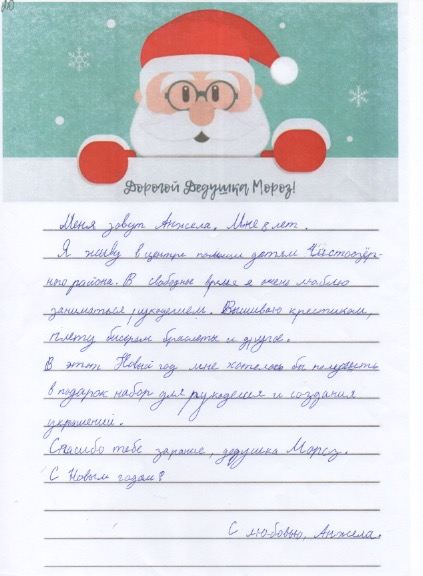 Дорогой Дедушка Мороз!
Меня зовут Анжела. Мне 8 лет.
Я живу в центре помощи детям Частоозёр-
ного района. В свободное время я очень люблю
заниматься рукоделием. Вышиваю крестиком,
плету бисером браслеты и другое.
В этот Новый год мне хотелось бы получить
в подарок набор для рукоделия и создания
украшений.
Спасибо тебе заранее, дедушка Мороз.
С Новым годом!
С любовью, Анжела.